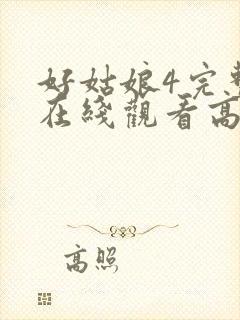 好姑娘4完整
在线观看高
高照